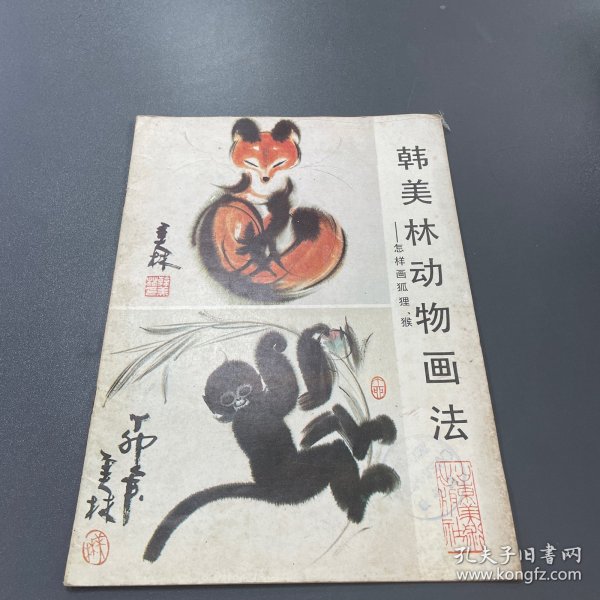 韩美林动物画法
——怎样画狐狸、猴
美林
丁卯
美林
孔夫子旧书网
www.kongfz.com